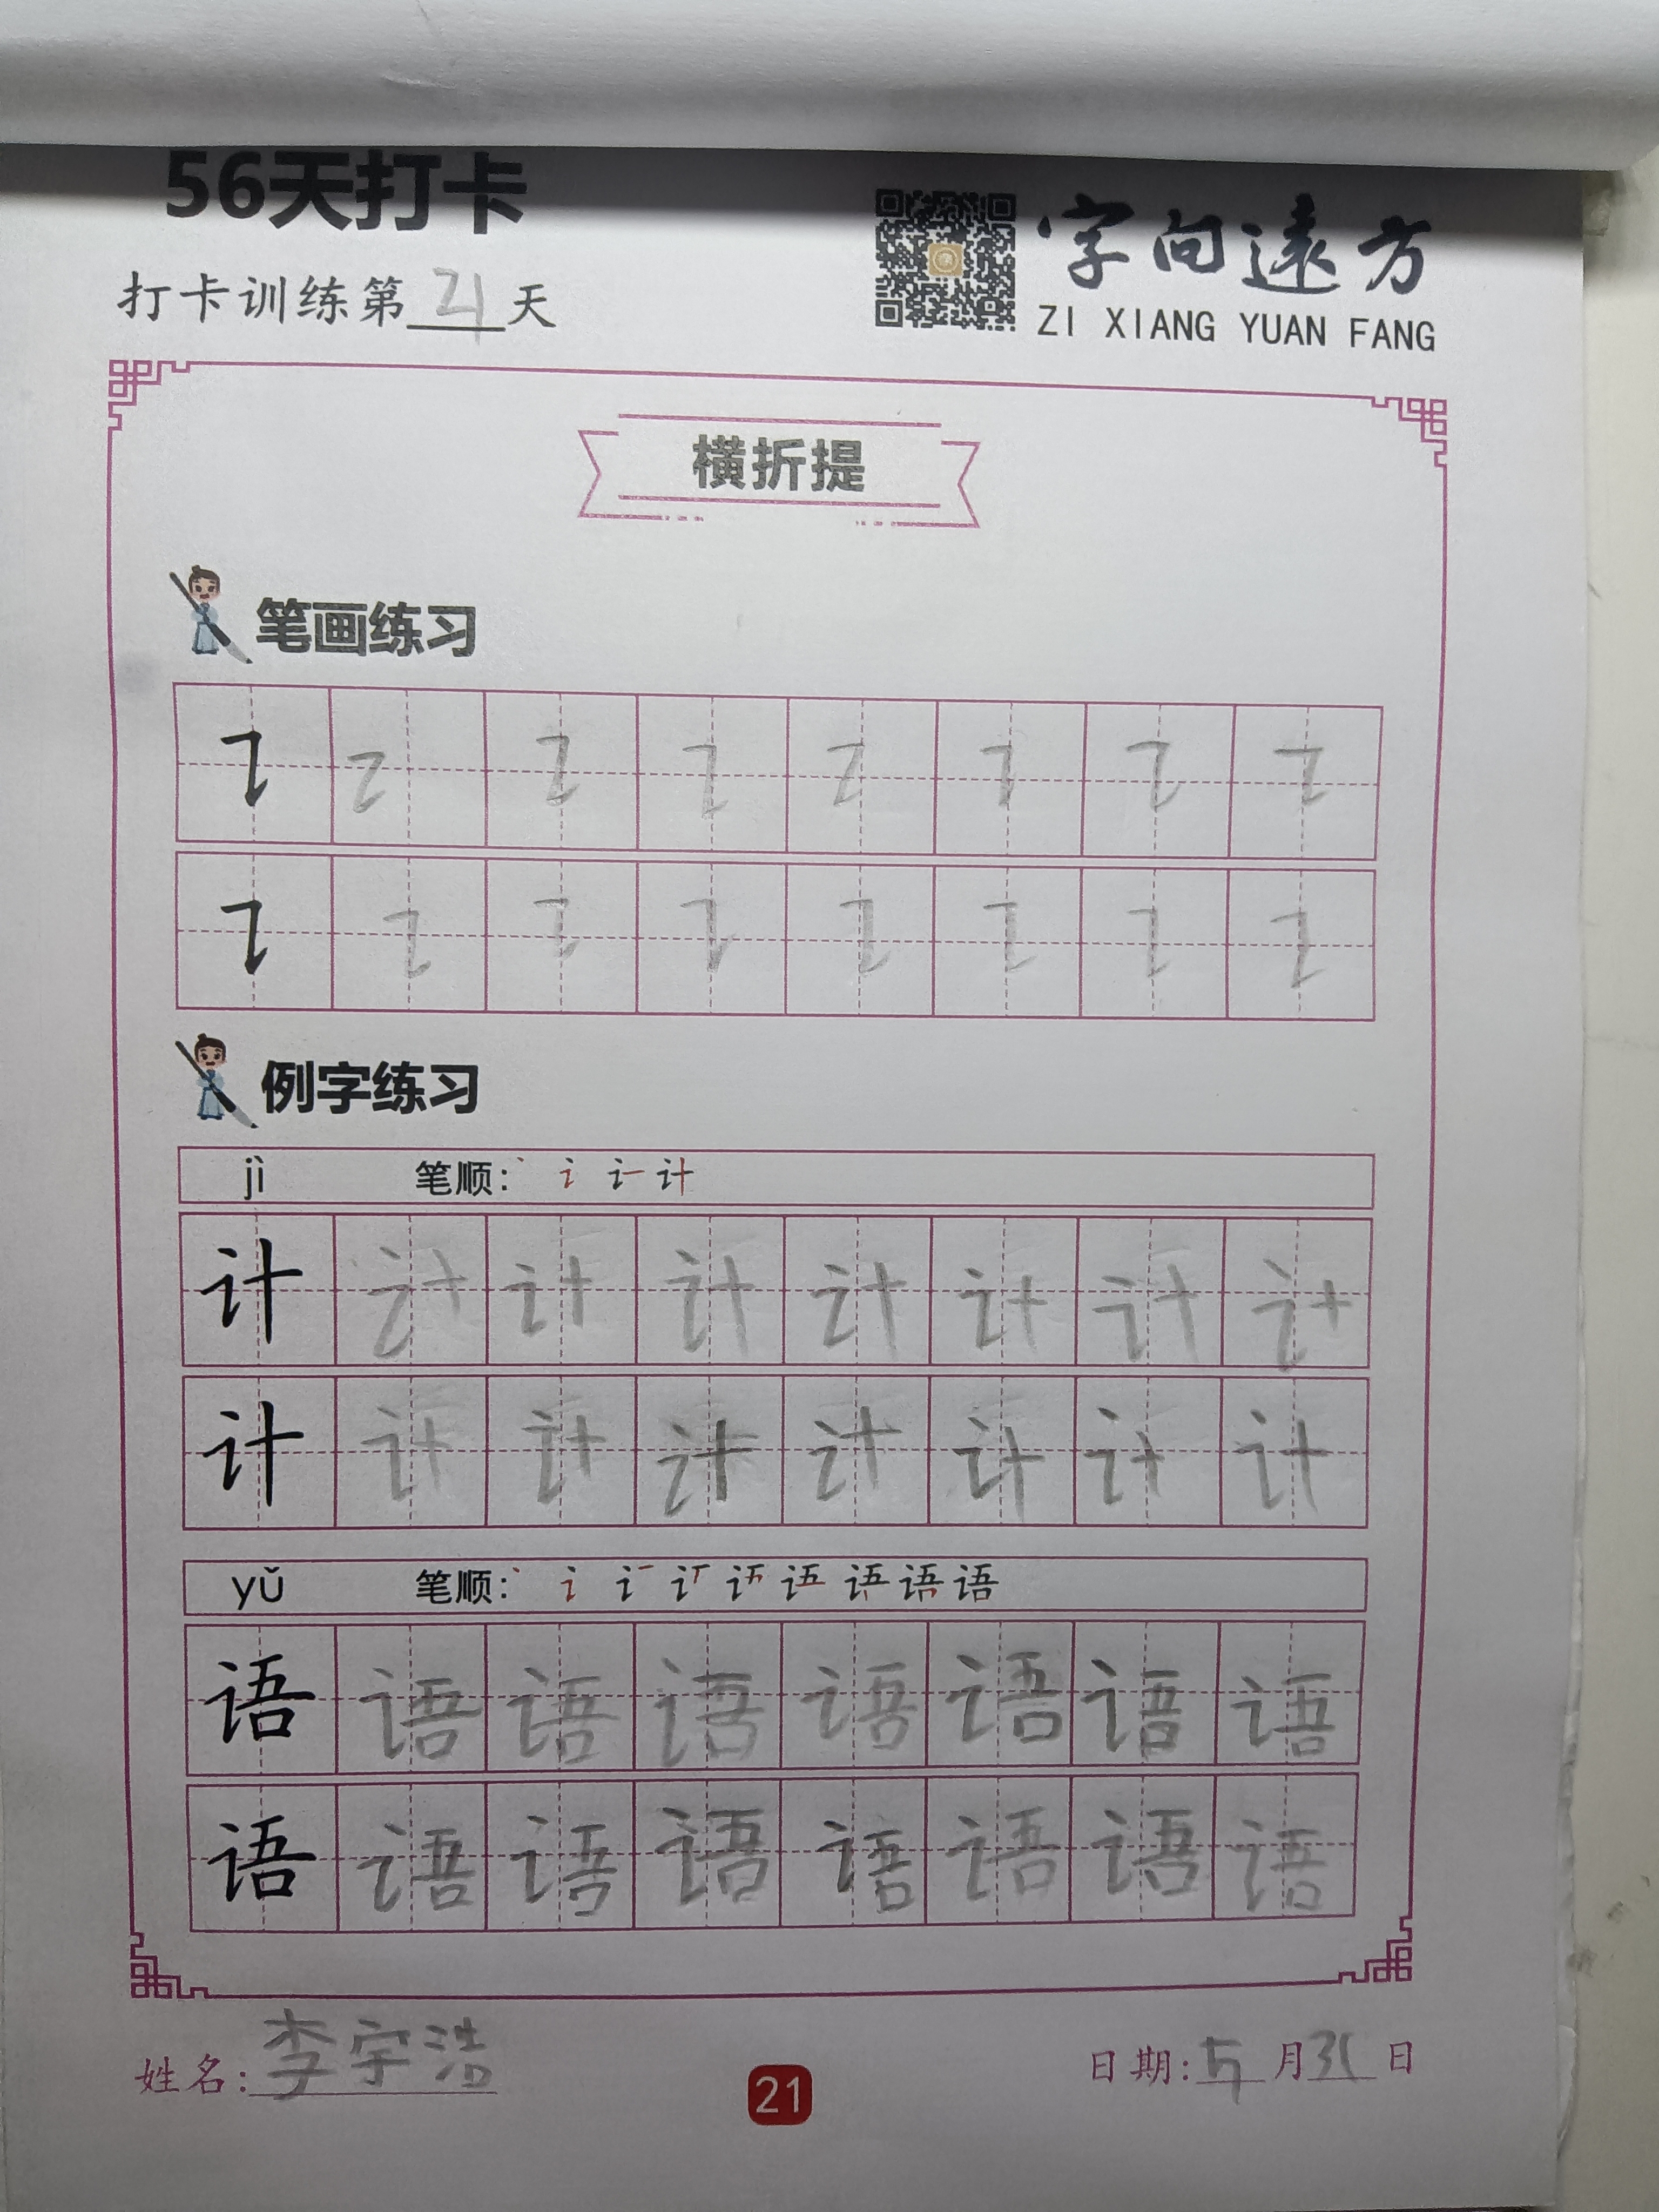 56天打卡
字向遠方
打卡训练第21天
ZI XIANG YUAN FANG
横折提
笔画练习
例字练习
jì 笔顺: 丶 讠 计
计 计 计 计 计 计 计 计
计 计 计 计 计 计 计 计
yǔ 笔顺: 丶 讠 语
语 语 语 语 语 语 语 语
语 语 语 语 语 语 语 语
姓名: 李宇浩
日期: 5月31日
21